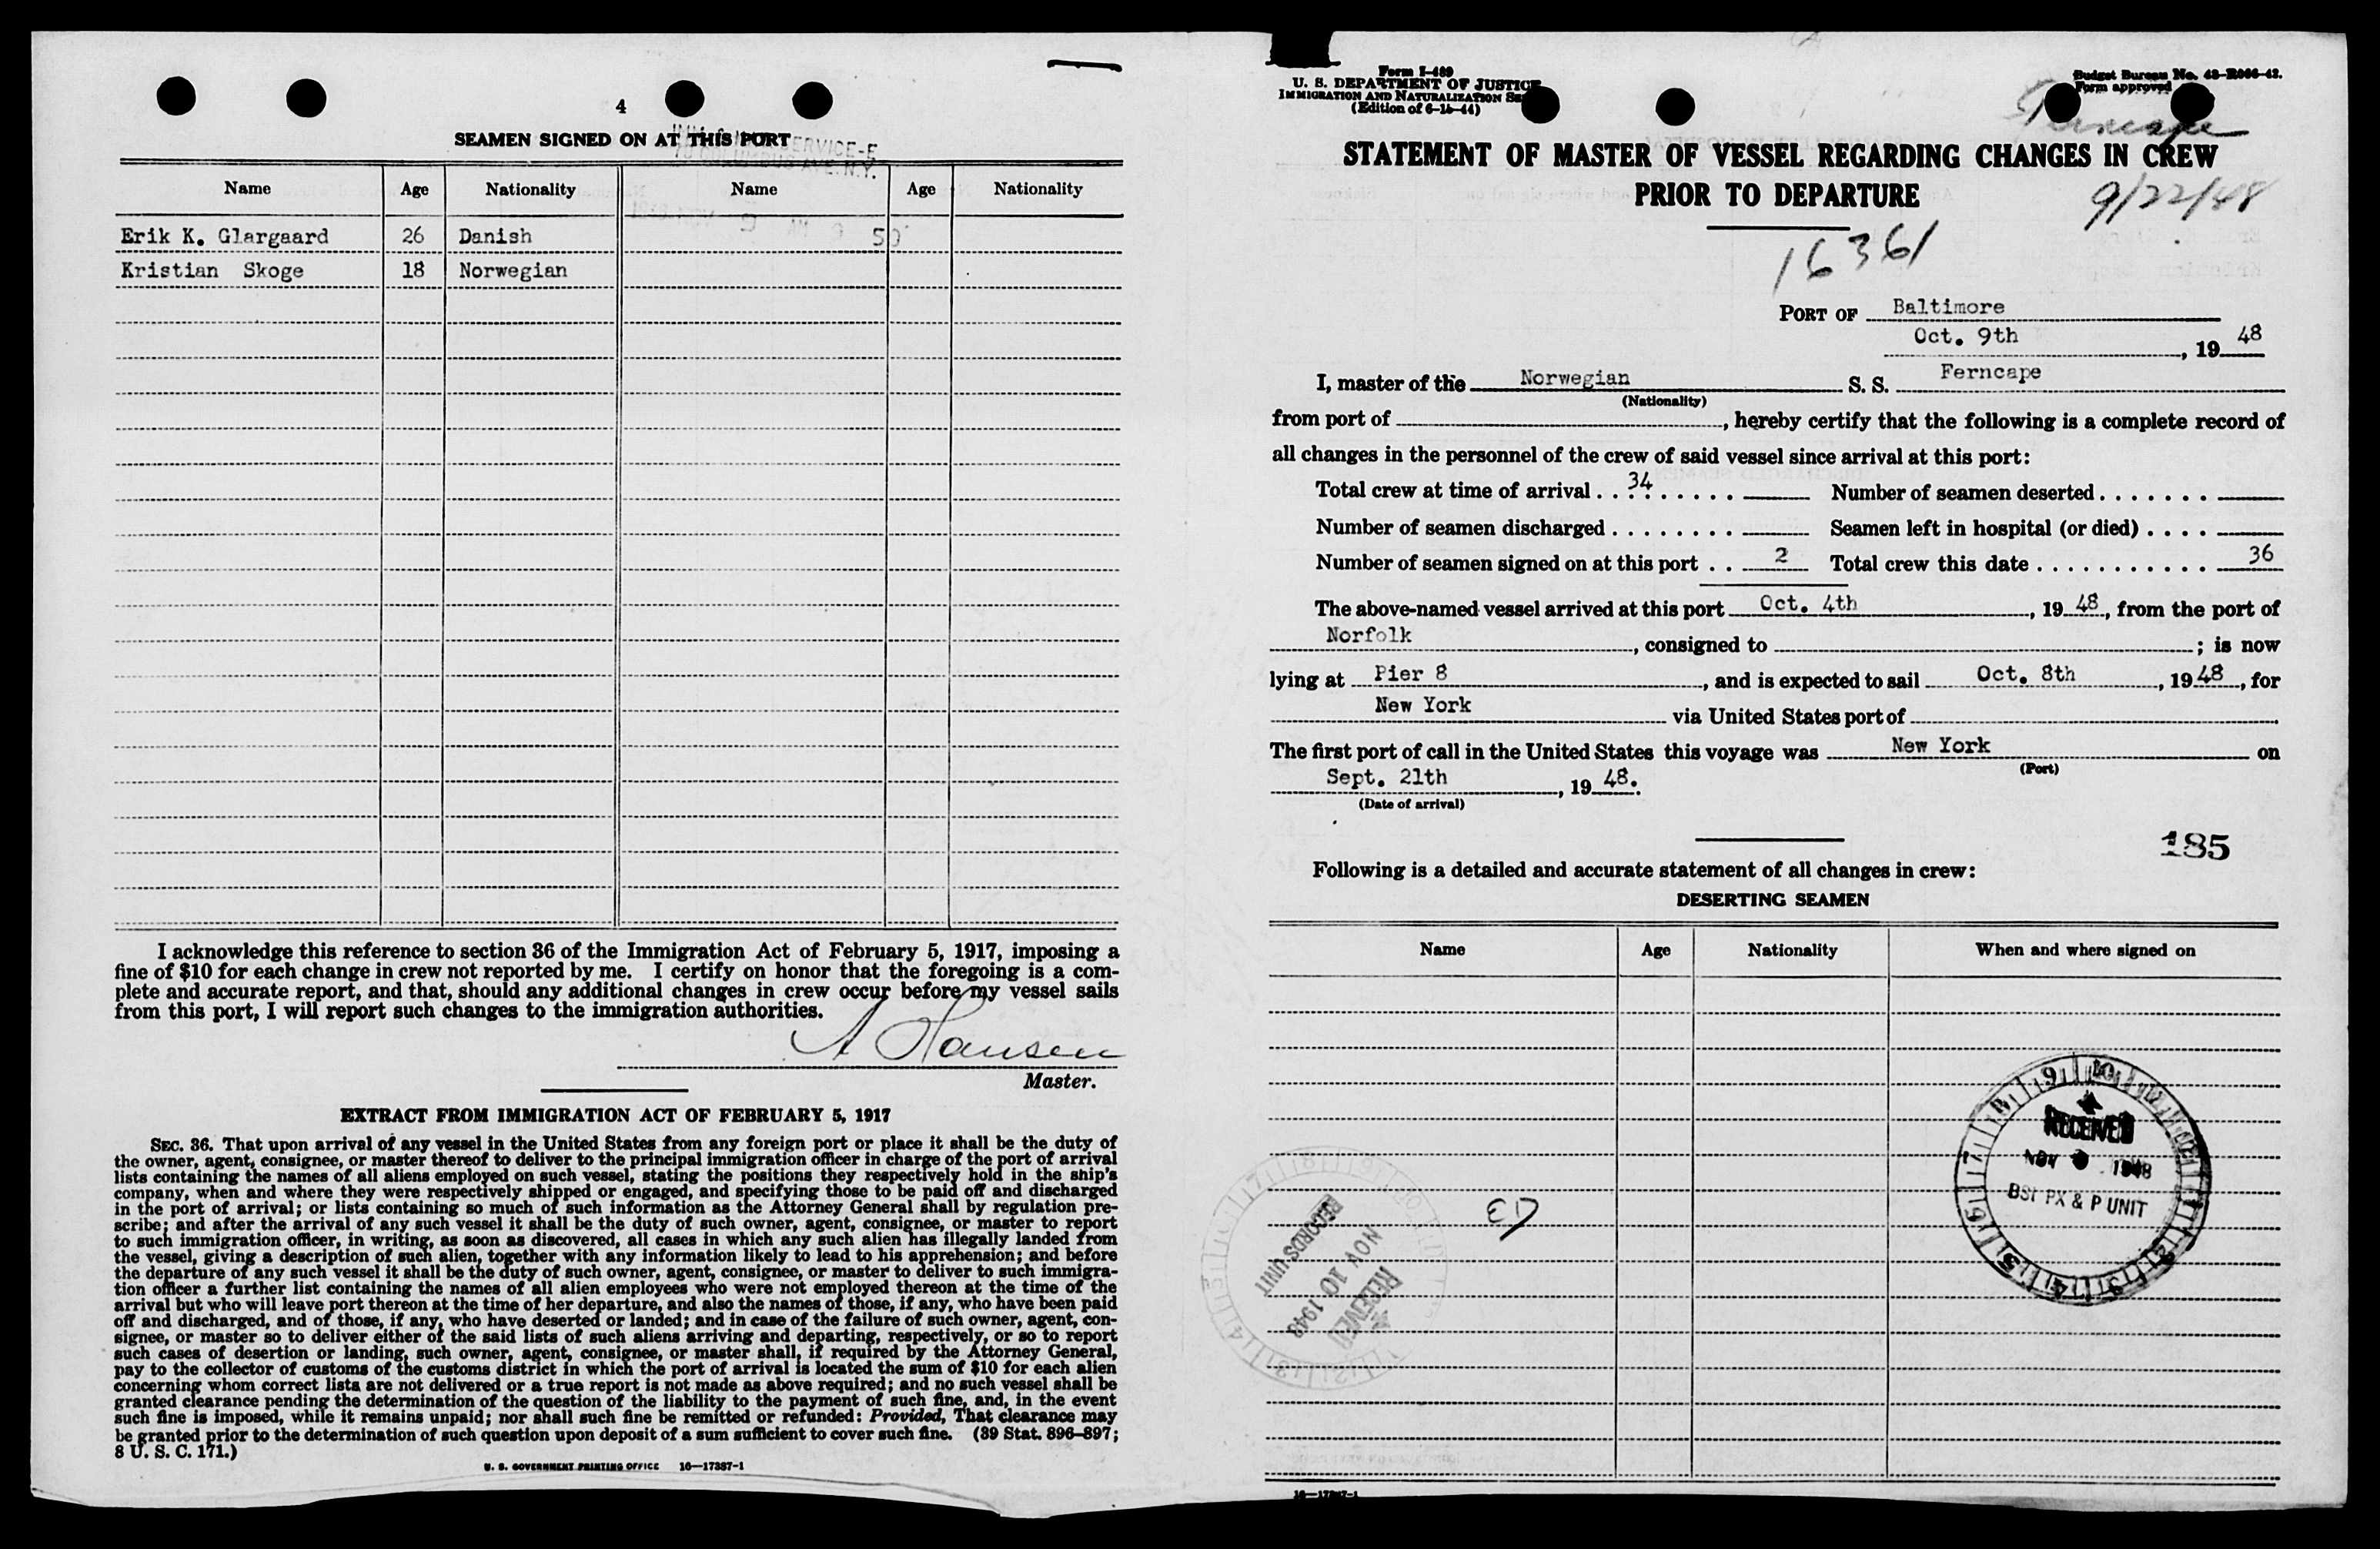 4
SEAMEN SIGNED ON AT THIS PORT
Name Age Nationality Name Age Nationality
Erik K. Glargaard 26 Danish
Kristian Skoge 18 Norwegian
I acknowledge this reference to section 36 of the Immigration Act of February 5, 1917, imposing a
fine of $10 for each change in crew not reported by me. I certify on honor that the foregoing is a com-
plete and accurate report, and that, should any additional changes in crew occur before my vessel sails
from this port, I will report such changes to the immigration authorities.
A Hansen
Master.
EXTRACT FROM IMMIGRATION ACT OF FEBRUARY 5, 1917
SEC. 36. That upon arrival of any vessel in the United States from any foreign port or place it shall be the duty of
the owner, agent, consignee, or master thereof to deliver to the principal immigration officer in charge of the port of arrival
lists containing the names of all aliens employed on such vessel, stating the positions they respectively hold in the ship's
company, when and where they were respectively shipped or engaged, and specifying those to be paid off and discharged
in the port of arrival; or lists containing so much of such information as the Attorney General shall by regulation pre-
scribe; and after the arrival of any such vessel it shall be the duty of such owner, agent, consignee, or master to report
to such immigration officer, in writing, as soon as discovered, all cases in which any such alien has illegally landed from
the vessel, giving a description of such alien, together with any information likely to lead to his apprehension; and before
the departure of any such vessel it shall be the duty of such owner, agent, consignee, or master to deliver to such immigra-
tion officer a further list containing the names of all alien employees who were not employed thereon at the time of the
arrival but who will leave port thereon at the time of her departure, and also the names of those, if any, who have been paid
off and discharged, and of those, if any, who have deserted or landed; and in case of the failure of such owner, agent, con-
signee, or master so to deliver either of the said lists of such aliens arriving and departing, respectively, or so to report
such cases of desertion or landing, such owner, agent, consignee, or master shall, if required by the Attorney General,
pay to the collector of customs of the customs district in which the port of arrival is located the sum of $10 for each alien
concerning whom correct lists are not delivered or a true report is not made as above required; and no such vessel shall be
granted clearance pending the determination of the question of the liability to the payment of such fine, and, in the event
such fine is imposed, while it remains unpaid; nor shall such fine be remitted or refunded: Provided, That clearance may
be granted prior to the determination of such question upon deposit of a sum sufficient to cover such fine. (39 Stat. 896–897;
8 U. S. C. 171.)
U. S. GOVERNMENT PRINTING OFFICE 16—17387-1
Form I-489
U. S. DEPARTMENT OF JUSTICE
IMMIGRATION AND NATURALIZATION
(Edition of 6-15-44)
Budget Bureau No. 43-R066-42.
Form approved
Ferncape
STATEMENT OF MASTER OF VESSEL REGARDING CHANGES IN CREW
PRIOR TO DEPARTURE
9/22/48
16361
PORT OF Baltimore
Oct. 9th, 19 48
I, master of the Norwegian S. S. Ferncape
(Nationality)
from port of , hereby certify that the following is a complete record of
all changes in the personnel of the crew of said vessel since arrival at this port:
Total crew at time of arrival 34 Number of seamen deserted
Number of seamen discharged Seamen left in hospital (or died)
Number of seamen signed on at this port 2 Total crew this date 36
The above-named vessel arrived at this port Oct. 4th, 19 48, from the port of
Norfolk, consigned to ; is now
lying at Pier 8, and is expected to sail Oct. 8th, 19 48, for
New York via United States port of
The first port of call in the United States this voyage was New York on
(Port)
Sept. 21th, 19 48.
(Date of arrival)
185
Following is a detailed and accurate statement of all changes in crew:
DESERTING SEAMEN
Name Age Nationality When and where signed on
RECEIVED
NOV 1948
BSI PX & P UNIT
RECEIVED
NOV 10 1948
RECORDS UNIT